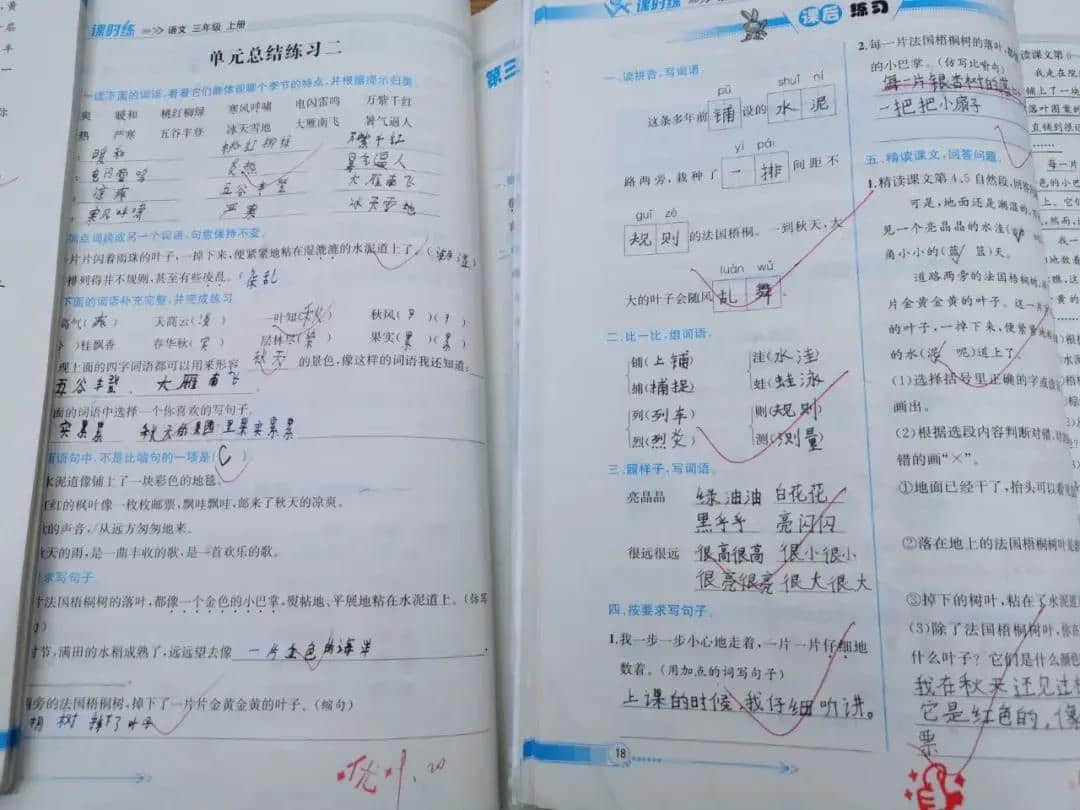 课时练 语文 三年级 上册
单元总结练习二
读下面的词语，看看它们都体现哪个季节的特点，并根据提示归类
爽 暖和 桃红柳绿 寒风呼啸 电闪雷鸣 万紫千红
热 严寒 五谷丰登 冰天雪地 大雁南飞 暑气逼人
暖和 桃红柳绿 万紫千红
电闪雷鸣 炎热 暑气逼人
凉爽 五谷丰登 大雁南飞
寒风呼啸 严寒 冰天雪地
点词语成另一个词语，句意保持不变。
片片闪着雨珠的叶子，一掉下来，便紧紧地粘在湿漉漉的水泥道上了。
排列得并不规则，甚至有些凌乱。（杂乱
下面的词语补充完整，并完成练习
高气（爽） 天高云（淡） 一叶知（秋） 秋风（ ）（ ）
）桂飘香 春华秋（实） 层林尽（ ） 果实（累）（累）
现上面的四字词语都可以用来形容 秋天 的景色，像这样的词语我还知道：
五谷丰登、大雁南飞
面的词语中选择一个你喜欢的写句子。
实累累 秋天的果园里果实累累
列语句中，不是比喻句的一项是（C）。
水泥道像铺上了一块彩色的地毯。
红的枫叶像一枚枚邮票，飘哇飘哇，邮来了秋天的凉爽。
的声音，从远方匆匆地来。
天的雨，是一曲丰收的歌，是一首欢乐的歌。
求写句子
片法国梧桐树的落叶，都像一个金色的小巴掌，熨帖地、平展地粘在水泥道上。（仿写
季节，满田的水稻成熟了，远远望去像 一片金色的海洋
旁的法国梧桐树，掉下了一片片金黄金黄的叶子。（缩句）
桐树掉下了叶子
优 9.20
第三
课时练
课后 练习
一、读拼音，写词语。
pū shuǐ ní
这条多年前 铺 设的 水 泥
yì pái
路两旁，栽种了 一 排 间距不
guī zé
规 则 的法国梧桐。一到秋天，大
luàn wǔ
大的叶子会随风 乱 舞 。
二、比一比，组词语。
铺（上铺 洼（水洼
捕（捕捉 蛙（蛙泳
列（列车 则（规则
烈（烈炎 测（測量
三、照样子，写词语。
亮晶晶 绿油油 白花花
黑乎乎 亮闪闪
很远很远 很高很高 很小很小
很亮很亮 很大很大
四、按要求写句子。
1.我一步一步小心地走着，一片一片仔细地
数着。（用加点的词写句子）
上课的时候，我仔细听讲。
18
2.每一片法国梧桐树的落叶，都
的小巴掌。（仿写比喻句）
每一片银杏树的
一把把小扇子
五、精读课文，回答问题。
1.精读课文第4、5自然段，回答问
可是，地面还是潮湿的，
见一个亮晶晶的水洼（
角小小的（蓝 篮）天。
道路两旁的法国梧桐树，
片金黄金黄的叶子。这一片
的叶子，一掉下来，便紧紧地
的水（泥 呢）道上了。
（1）选择括号里正确的字或读
画出。
（2）根据选段内容判断对错，对
错的画“×”。
①地面已经干了，抬头可以看
②落在地上的法国梧桐树叶
③掉下的树叶，粘在了水泥道
（3）除了法国梧桐树叶，你在
什么叶子？它们是什么颜
我在秋来还见过
它是红色的，像
票